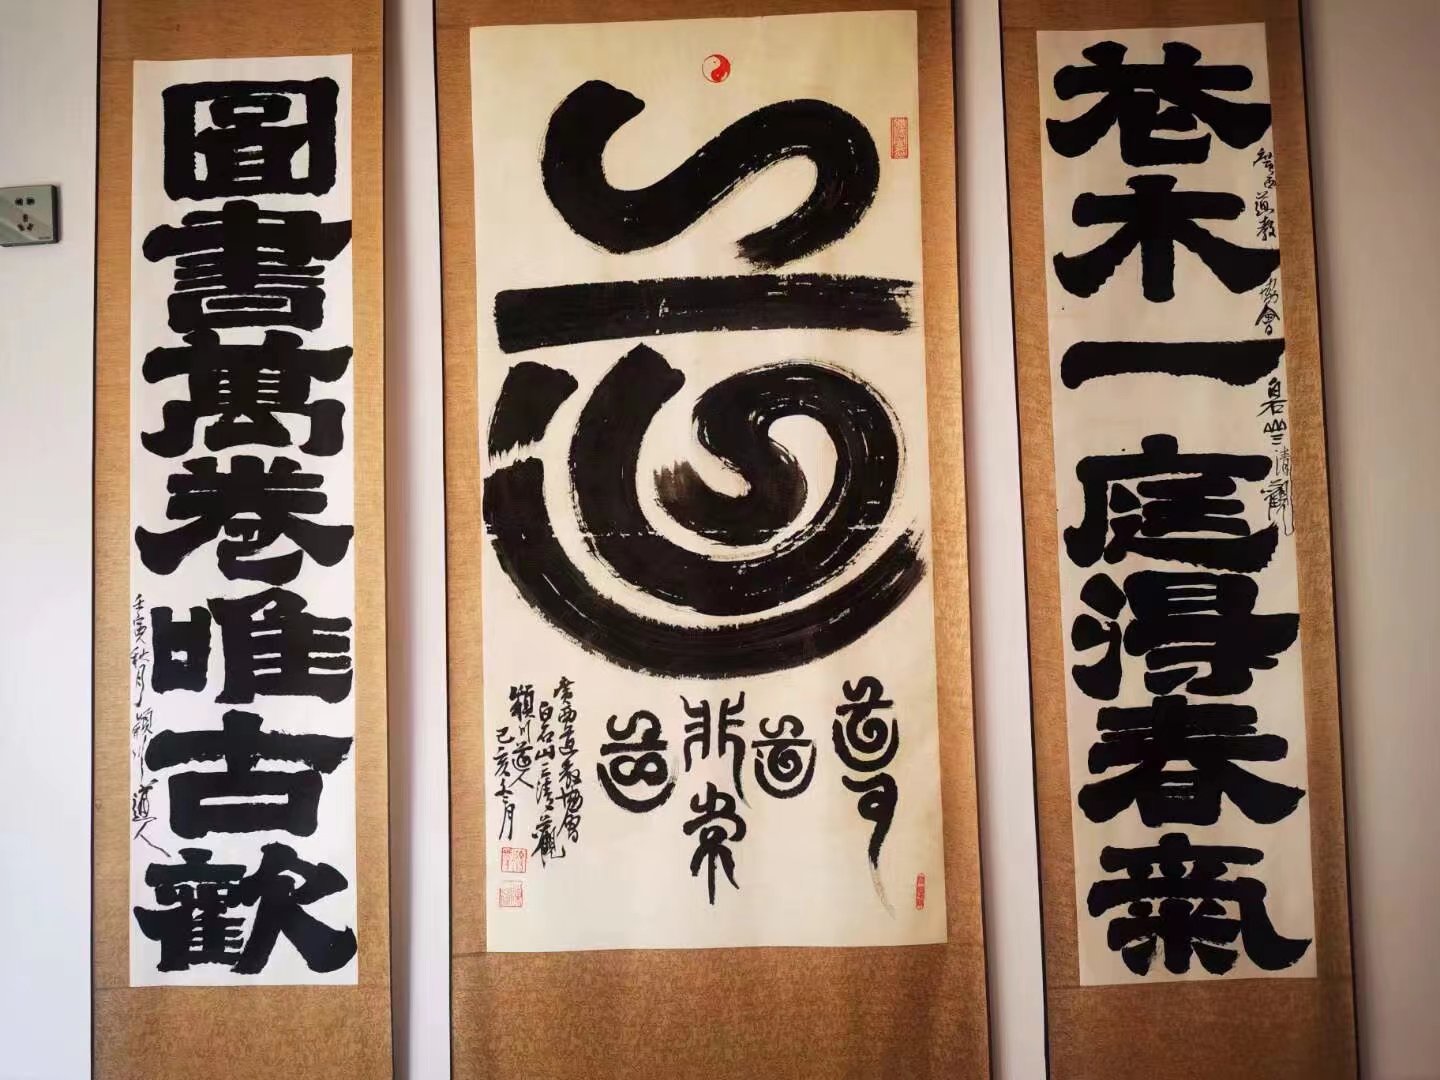 巷木一庭得春氣
廣西道教協會白石山三清觀
道
道可
道
非常
道
廣西道教協會
白石山三清觀
潁川道人
己亥冬月
圖書萬卷唯古歡
壬寅秋月潁川道人